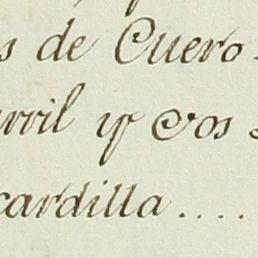 s de Cuero
rril y dos
cardilla....